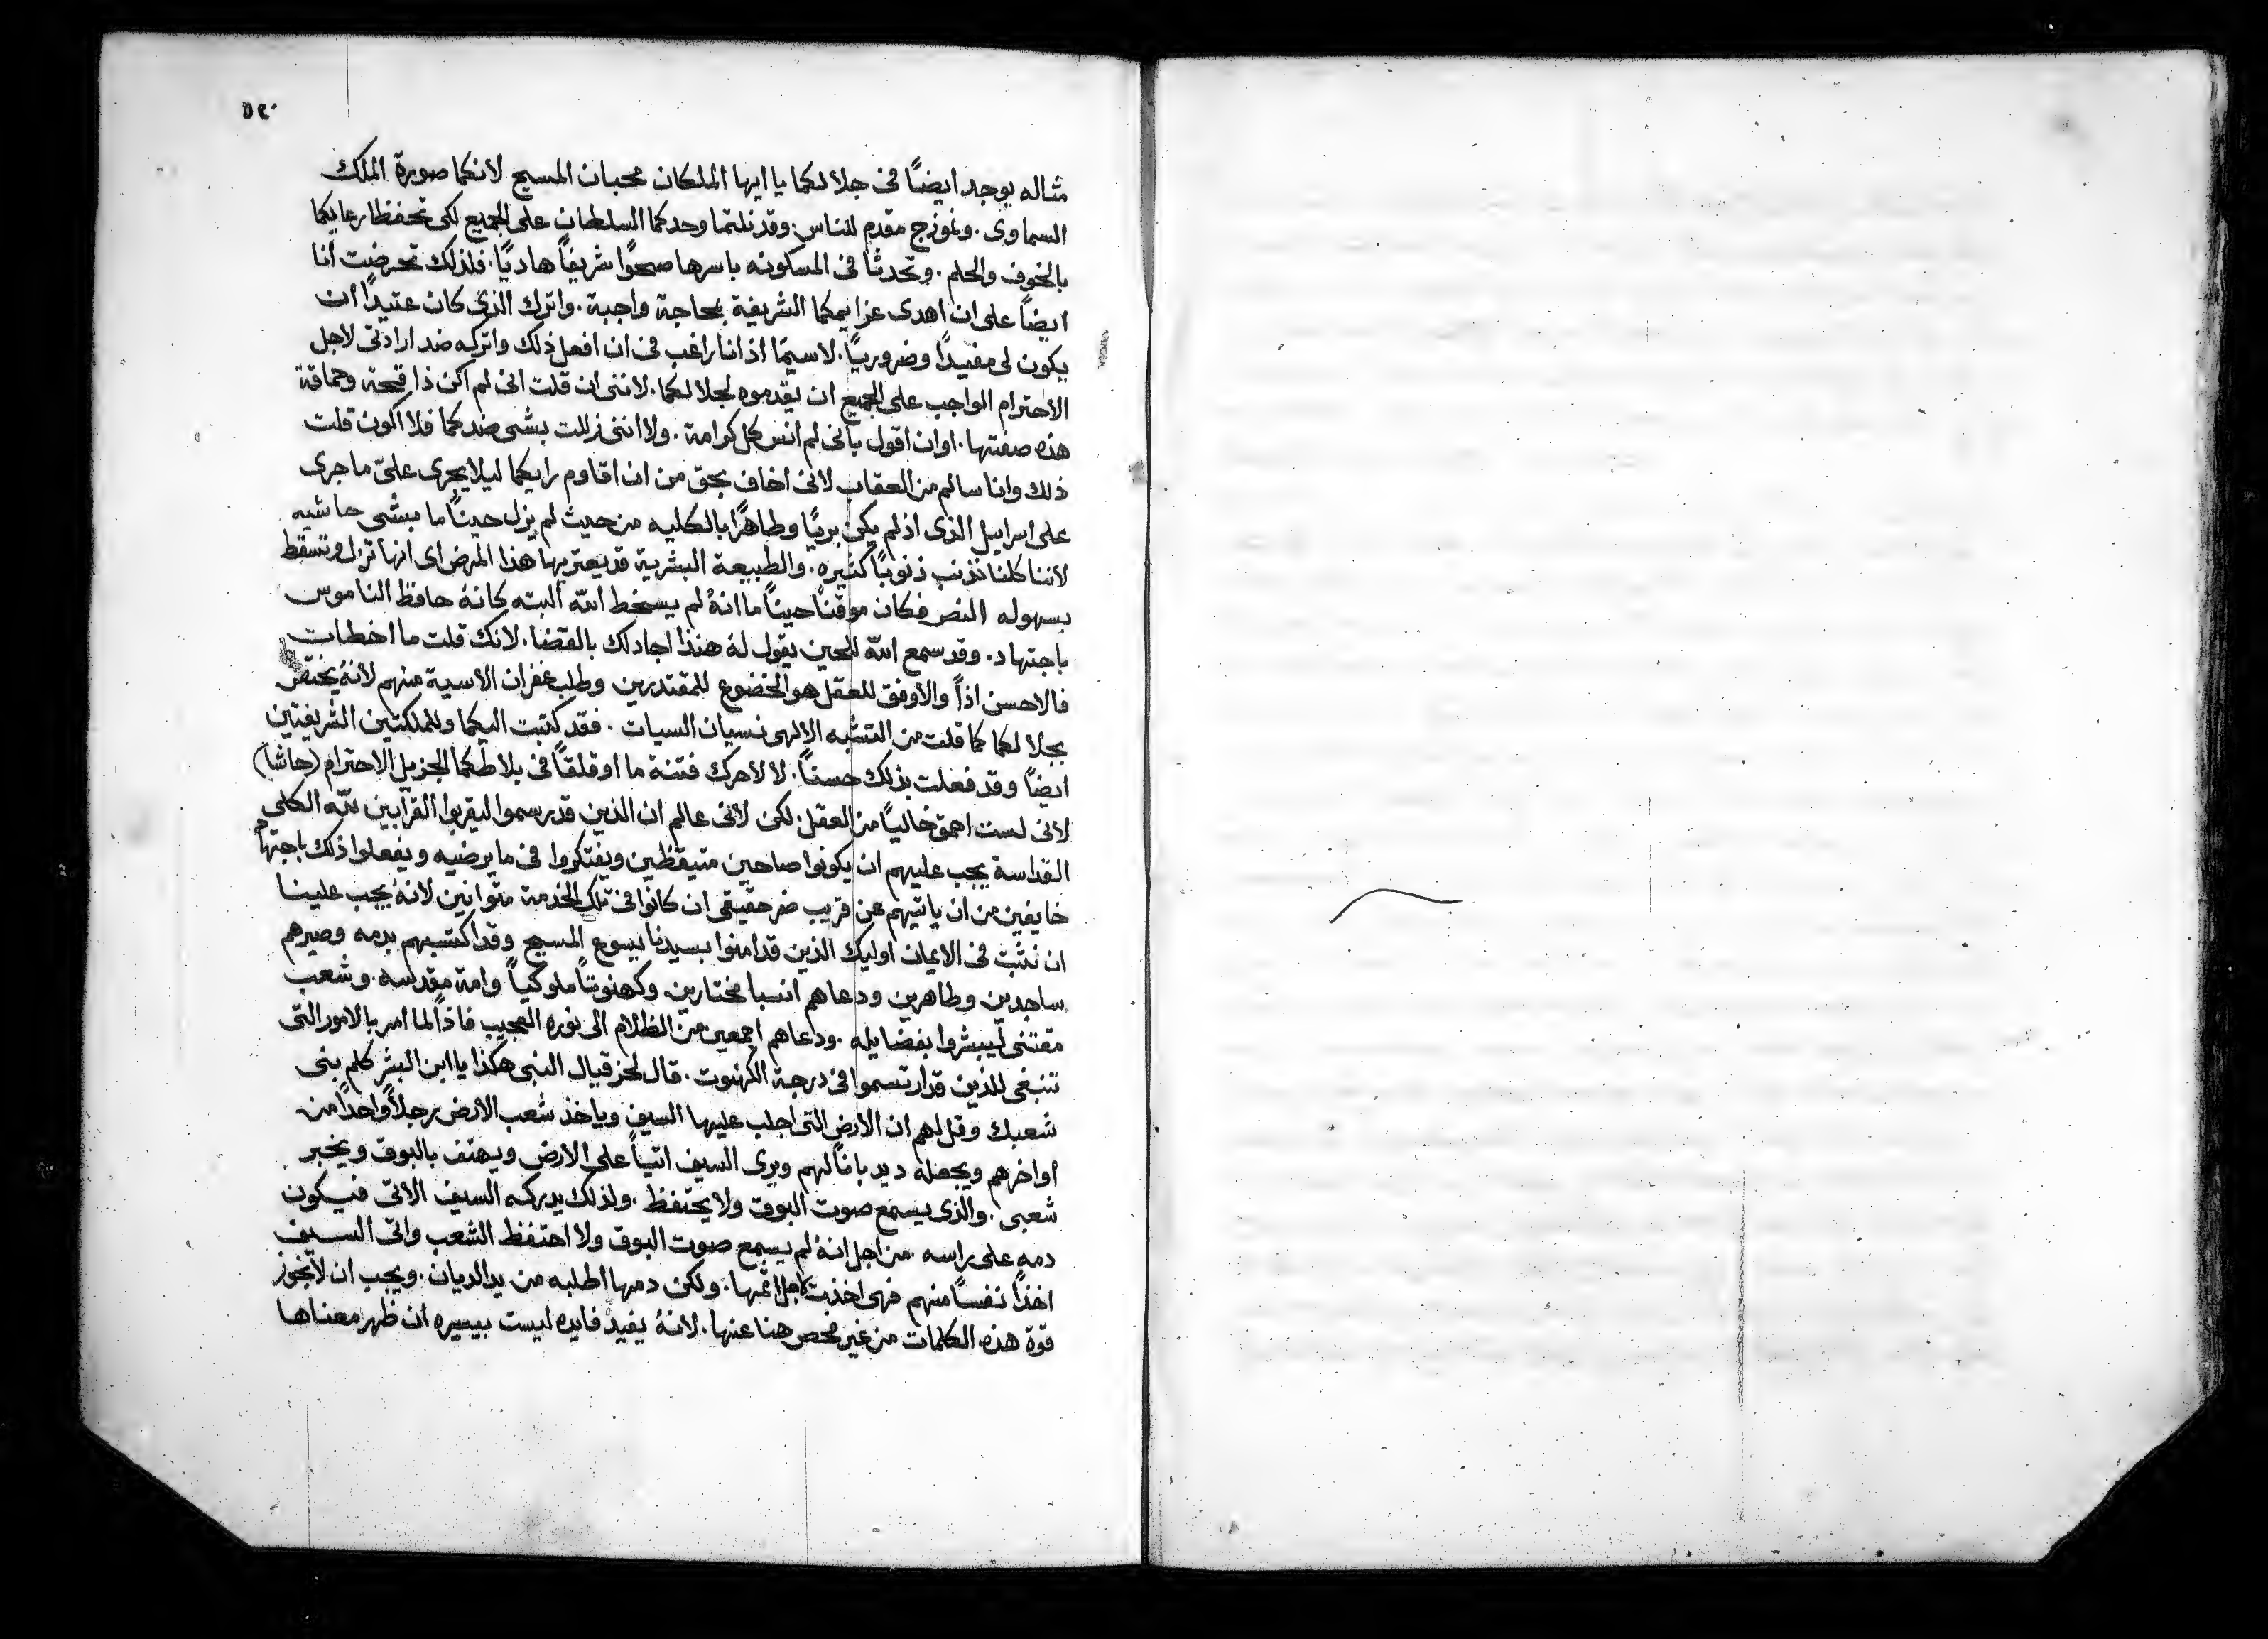 ٥٢٠
مثاله يوجد ايضًا فى جلالكما يا ايها الملكان محبان المسيح لانكما صورة الملك
السماوى. ونموزج مقدم للناس. وقد نلتما وحدكما السلطان على الجميع لكى تحفظا رعاياكما
بالخوف والحلم. وتحدثا فى المسكونه باسرها صحوًا شريفًا هاديًا. فلذلك تحرضت أنا
ايضاً على ان اهدى عزايمكما الشريفة بحاجة واجبة. واترك الذى كان عتيدًا ان
يكون لى مفيدًا وضروريًا. لاسيمّا اذ انا راغب فى ان افعل ذلك واتركه ضد ارادتى لاجل
الاحترام الواجب على الجميع ان يقدموه لجلالكما. لاننى ان قلت انى لم اكن ذا قحة وحماقة
هذه صفتها. اوان اقول بانى لم انس كل كرامة. ولا اننى زللت بشى ضدكما فلا اكون قلت
ذلك وانا سالم من العقاب لانى اخاف بحق من ان اقاوم رايكما ليلا يجرى علىّ ما جرى
على اسراييل الذى اذ لم يكن بريًا وطاهرًا بالكليه من حيث لم يزل حينًا ما بشى حاشيه
لاننا كلنا نذنب ذنوبًا كثيره. والطبيعة البشرية قد يعتريها هذا المرض اى انها تزل وتسقط
بسهوله النص فكان موقنًا حينًا ما انهُ لم يسخط الله البته كانهُ حافظ الناموس
باجتهاد. وقد سمع الله للحين يقول لهُ هنذا اجادلك بالقضا. لانك قلت ما اخطات
فالاحسن اذاً والاوفق للعقل هو الخضوع للمقتدرين وطلب غفران الاسية منهم لانهُ يختص
بجلالكما كما قلت من التشبه الالهى نسيان السيات. فقد كتبت اليكما وللملكتين الشريفتين
ايضاً وقد فعلت بذلك حسناً. لا لاحرك فتنة ما اوقلقاً فى بلاطكما الجزيل الاحترام (حاشا)
لانى لست احمق خاليًا من العقل لكن لانى عالم ان الذين قد رسموا ليقربوا القرابين لله الكلى
القداسة يجب عليهم ان يكونوا صاحين متيقظين ويفتكروا فى ما يرضيه ويفعلوا ذلك باجتهاد
خايفين من ان ياتيهم عن قريب ضر حقيقى ان كانوا فى تلك الخدمة متوانين لانهُ يجب علينا
ان نثبت فى الايمان اوليك الذين قد امنوا بسيدنا يسوع المسيح وقد اكتسبهم بدمه وصيرهم
ساجدين وطاهرين ودعاهم انسبا مختارين. وكهنوتاً ملوكياً وامة مقدسه. وشعب
مقتنى ليبشروا بفضايله. ودعاهم اجمعين من الظلام الى نوره العجيب فاذاً لما امر بالامور التى
تنبغى للذين قد ارتسموا فى درجة الكهنوت. قال لحزقيال النبى هكذا يا ابن البشر كلم بنى
شعبك وقل لهم ان الارض التى اجلب عليها السيف وياخذ شعب الارض رجلاً واحدًا من
اواخرهم ويجعله ديدبانًا لهم ويرى السيف اتياً على الارض ويهتف بالبوق ويخبر
شعبى. والذى يسمع صوت البوق ولا يحتفظ. ولذلك يدركه السيف الاتى فيكون
دمه على راسه. من اجل انهُ لم يسمع صوت البوق ولا احتفظ الشعب واتى السيف
اخذًا نفساً منهم فهى اخذت لاجل اثمها. ولكن دمها اطلبه من يد الديان. ويجب ان لا تجوز
قوة هذه الكلمات من غير فحص هنا عنها. لانهُ يفيد فايده ليست بيسيره ان ظهر معناها